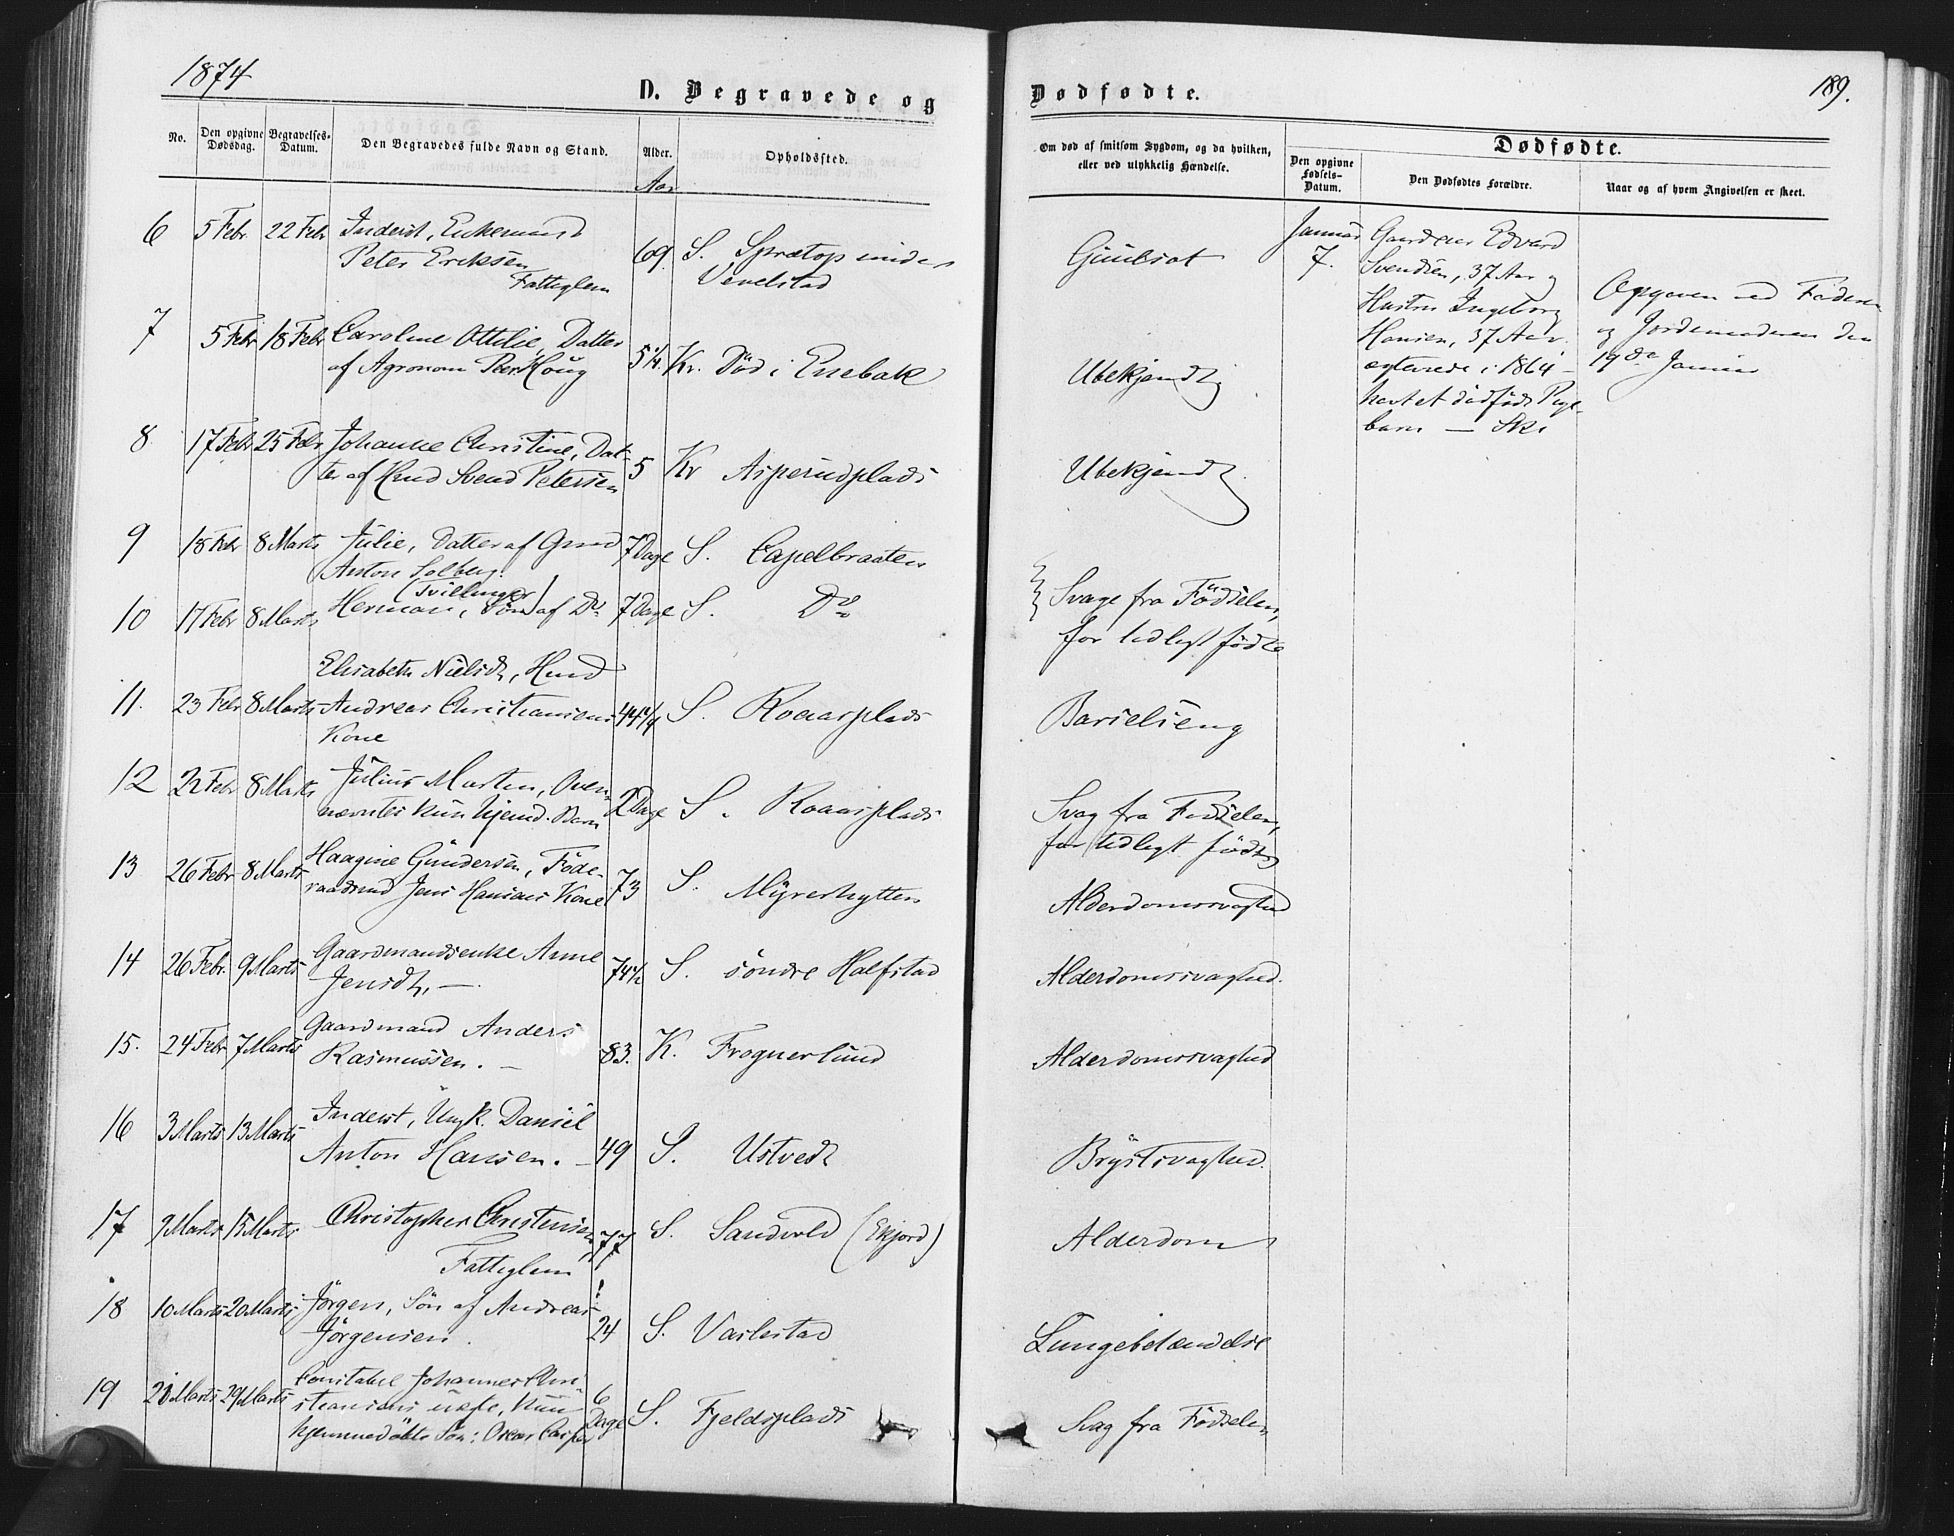 1874
189.
D. Begravede og
Dødfødte.
No.
Den opgivne Dødsdag.
Begravelses-Datum.
Den Begravedes fulde Navn og Stand.
Alder.
Opholdssted.
Om død af smitsom Sygdom, og da hvilken,
eller ved ulykkelig Hændelse.
Dødfødte.
Den opgivne Fødsels-Datum.
Den Dødfødtes Forældre.
Naar og af hvem Angivelsen er skeet.
Aar
6 5 Febr. 22 Febr Inderst, Enkemand
Peter Eriksen 69 S. Sprætop under
Fattiglem Venelstad
Guulsot
7 5 Febr 18 Febr Caroline Ottilie, Datter
af Agronom Peer Houg 5 1/4 Kr. Død i Enebak
Ubekjendt
8 17 Febr 25 Febr Johanne Christine, Dat-
ter af Hmd Svend Petersen 5 Kr Asperudplads
Ubekjendt
9 18 Febr 8 Marts Julie, Datter af Grmd 7 Dage S. Capelbraaten
Anton Solberg.
(Tvillinger)
10 17 Febr 8 Marts Herman, Søn af Do. 7 Dage S. Do
Svage fra Fødselen,
for tidligt fødte
Elisabeth Nielsdt, Hmd
11. 23 Febr 8 Marts Andreas Christiansens 44 1/4 S. Roaasplads
Kone
Barselseng
12 22 Febr 8 Marts Julius Martin, Oven-
nævntes kun hjemd. Barn 2 Dage S. Roaasplads
Svag fra Fødselen,
for tidligt født
13 26 Febr 8 Marts Haagine Gundersen, Føde-
raadsmd Jens Hansens Kone 73 S. Myrerhytten
Alderdomssvaghed
14 26 Febr. 9 Marts Gaardmandsenke Anne
Jensdt. — 74 1/2 S. søndre Halfstad
Alderdomssvaghed.
15. 24 Febr 7 Marts Gaardmand Anders
Rasmussen. — 83. K. Frognerlund
Alderdomssvaghed
16 3 Marts 13 Marts Inderst, Ungk. Daniel
Anton Hansen. — 49 S. Ustvedt
Brystsvaghed.
17 9 Marts 15 Marts Christopher Christensen, 77 S. Sandvold (Ekjord)
Fattiglem
Alderdom
18 10 Marts 20 Marts Jørgen, Søn af Andreas
Jørgensen. 24 S. Varlestad
Lungebetændelse
19 21 Marts 29 Marts Constabel Johannes Chri-
stiansens uægte, kun 6 Dage S. Fjeldsplads
hjemmedøbte Søn: Oscar Casper
Svag fra Fødselen
Januar
7.
Gaardeier Edvard
Svendsen, 37 Aar og
Hustru Ingeborg
Hansen, 37 Aar
ægteviede i 1864 –
havt et dødfødt Pige-
barn — Ski
Opgiven ved Faderen
og Jordemoderen den
19de Januar